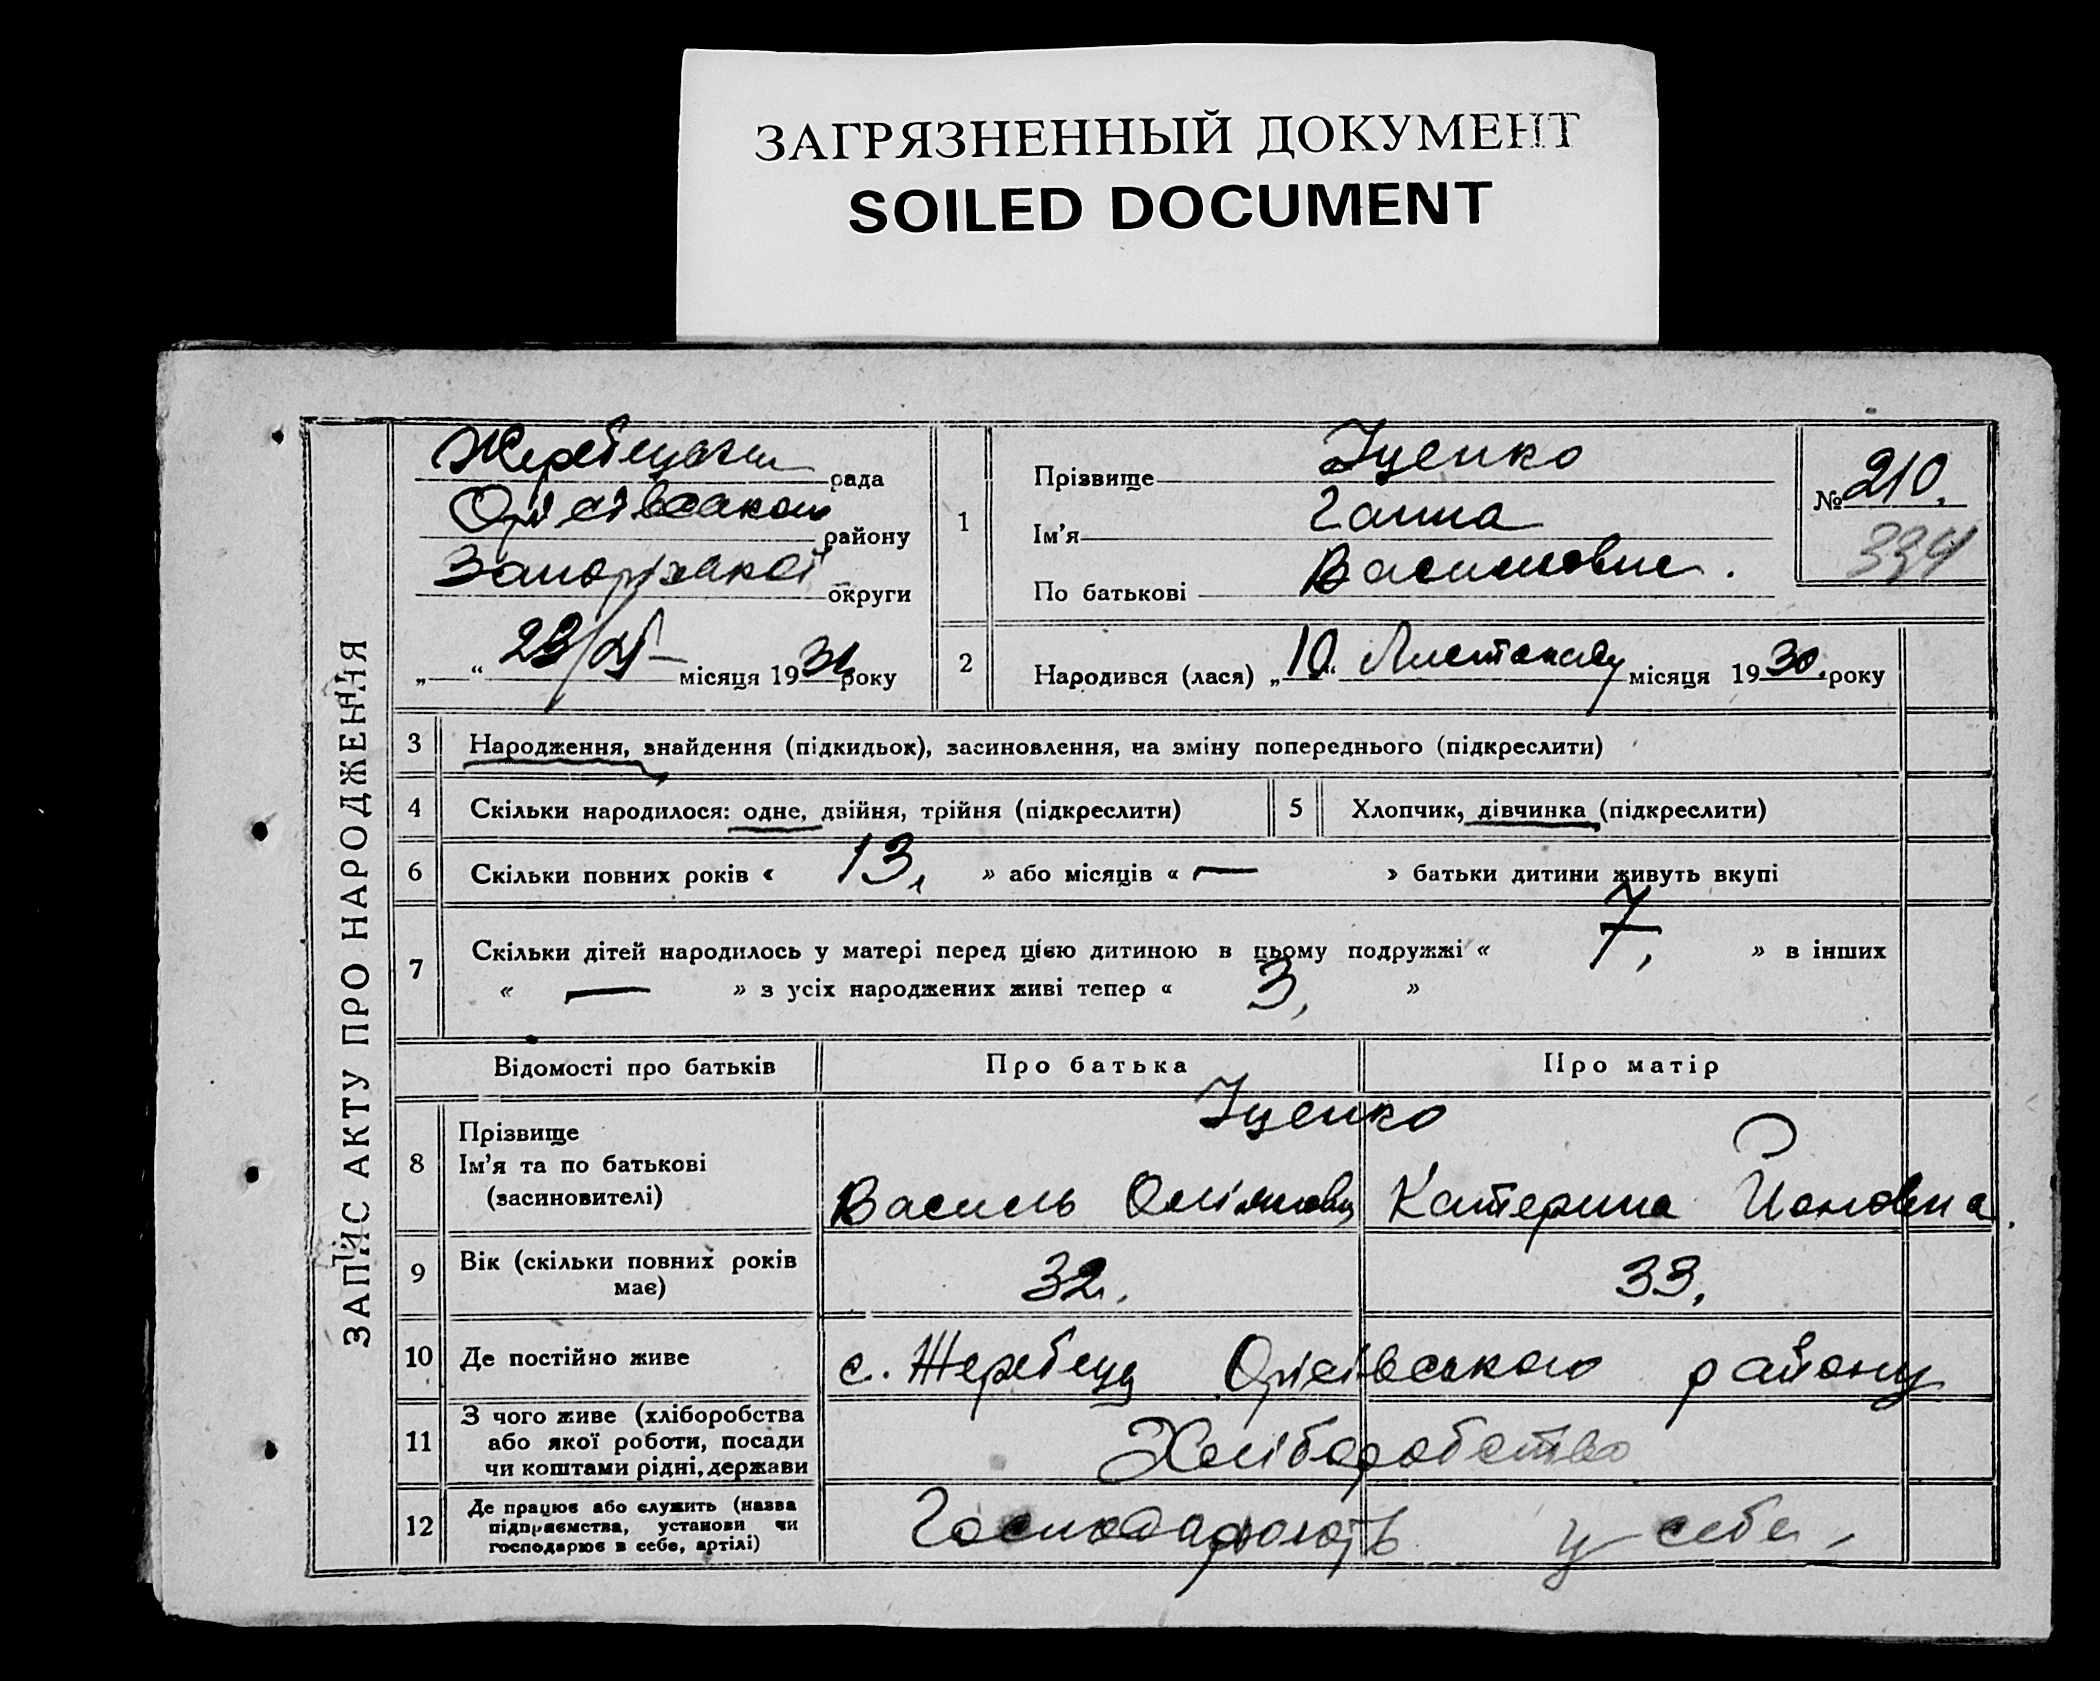 ЗАГРЯЗНЕННЫЙ ДОКУМЕНТ
SOILED DOCUMENT
ЗАПИС АКТУ ПРО НАРОДЖЕННЯ
рада
району
Запорізької округи
„ “ місяця 1931 року
1
Прізвище Іценко
Ім'я Ганна
По батькові Василовна.
№ 210.
334
2 Народився (лася) „10“ Листопаду місяця 1930. року
3 Народження, знайдення (підкидьок), засиновлення, на зміну попереднього (підкреслити)
4 Скільки народилося: одне, двійня, трійня (підкреслити) 5 Хлопчик, дівчинка (підкреслити)
6 Скільки повних років « 13, » або місяців « — » батьки дитини живуть вкупі
7 Скільки дітей народилось у матері перед цією дитиною в цьому подружжі « 7, » в інших
« — » з усіх народжених живі тепер « 3, »
Відомості про батьків Про батька Про матір
8 Прізвище Іценко
Ім'я та по батькові
(засиновителі) Василь Катерина Йоновна
9 Вік (скільки повних років
має) 32. 33,
10 Де постійно живе с. Жеребець Оріхівського району
11 З чого живе (хліборобства
або якої роботи, посади
чи коштами рідні, держави Хліборобство
12 Де працює або служить (назва
підприємства, установи чи
господарює в себе, артілі) Господарюють у себе,